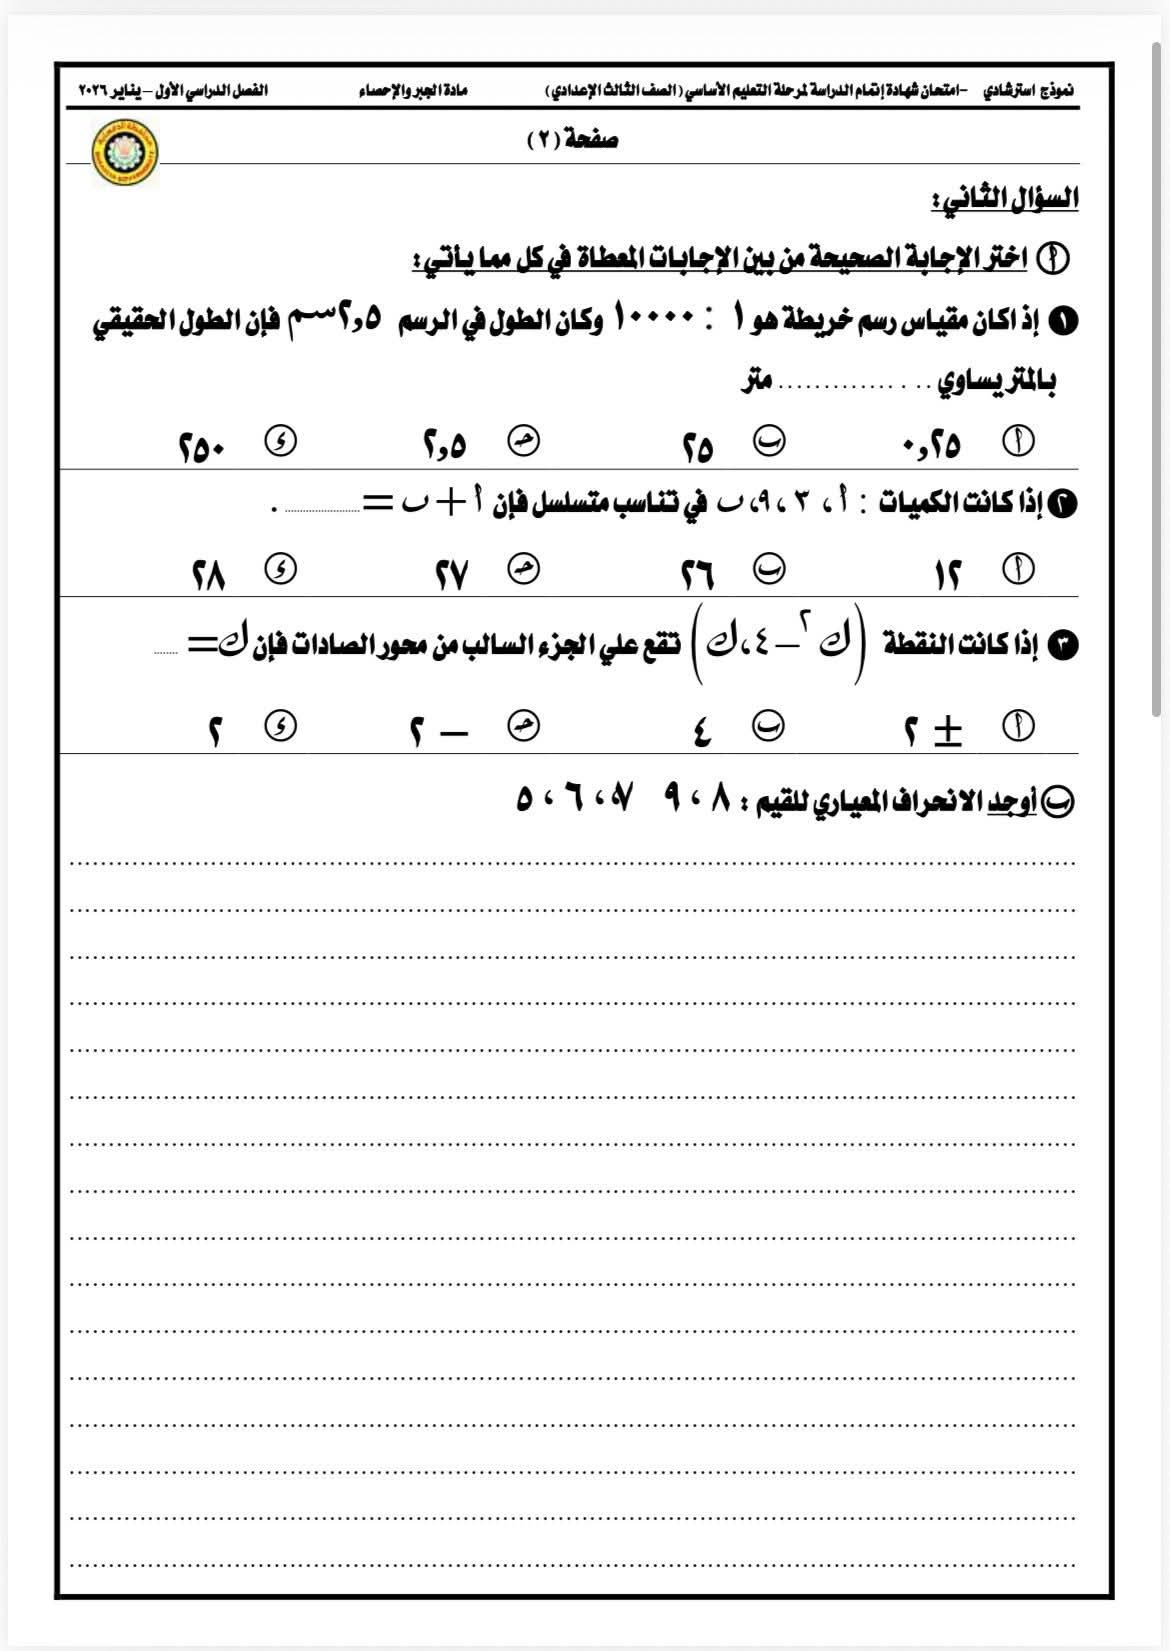 نموذج استرشادي –امتحان شهادة إتمام الدراسة لمرحلة التعليم الأساسي (الصف الثالث الإعدادي) مادة الجبر والإحصاء الفصل الدراسي الأول – يناير ٢٠٢٦
صفحة (٢)
السؤال الثاني:
أ اختر الإجابة الصحيحة من بين الإجابات المعطاة في كل مما يأتي:
١ إذ اكان مقياس رسم خريطة هو ١ : ١٠٠٠٠ وكان الطول في الرسم ٢,٥سم فإن الطول الحقيقي
بالمتر يساوي .............. متر
أ ٠,٢٥ ب ٢٥ حـ ٢,٥ ء ٢٥٠
٢ إذا كانت الكميات : أ ، ٣ ، ٩، ب في تناسب متسلسل فإن أ + ب = .............. .
أ ١٢ ب ٢٦ حـ ٢٧ ء ٢٨
٣ إذا كانت النقطة (ك٢ – ٤، ك) تقع علي الجزء السالب من محور الصادات فإن ك= ........
أ ± ٢ ب ٤ حـ – ٢ ء ٢
ب أوجد الانحراف المعياري للقيم : ٨ ، ٩ ٧ ، ٦ ، ٥